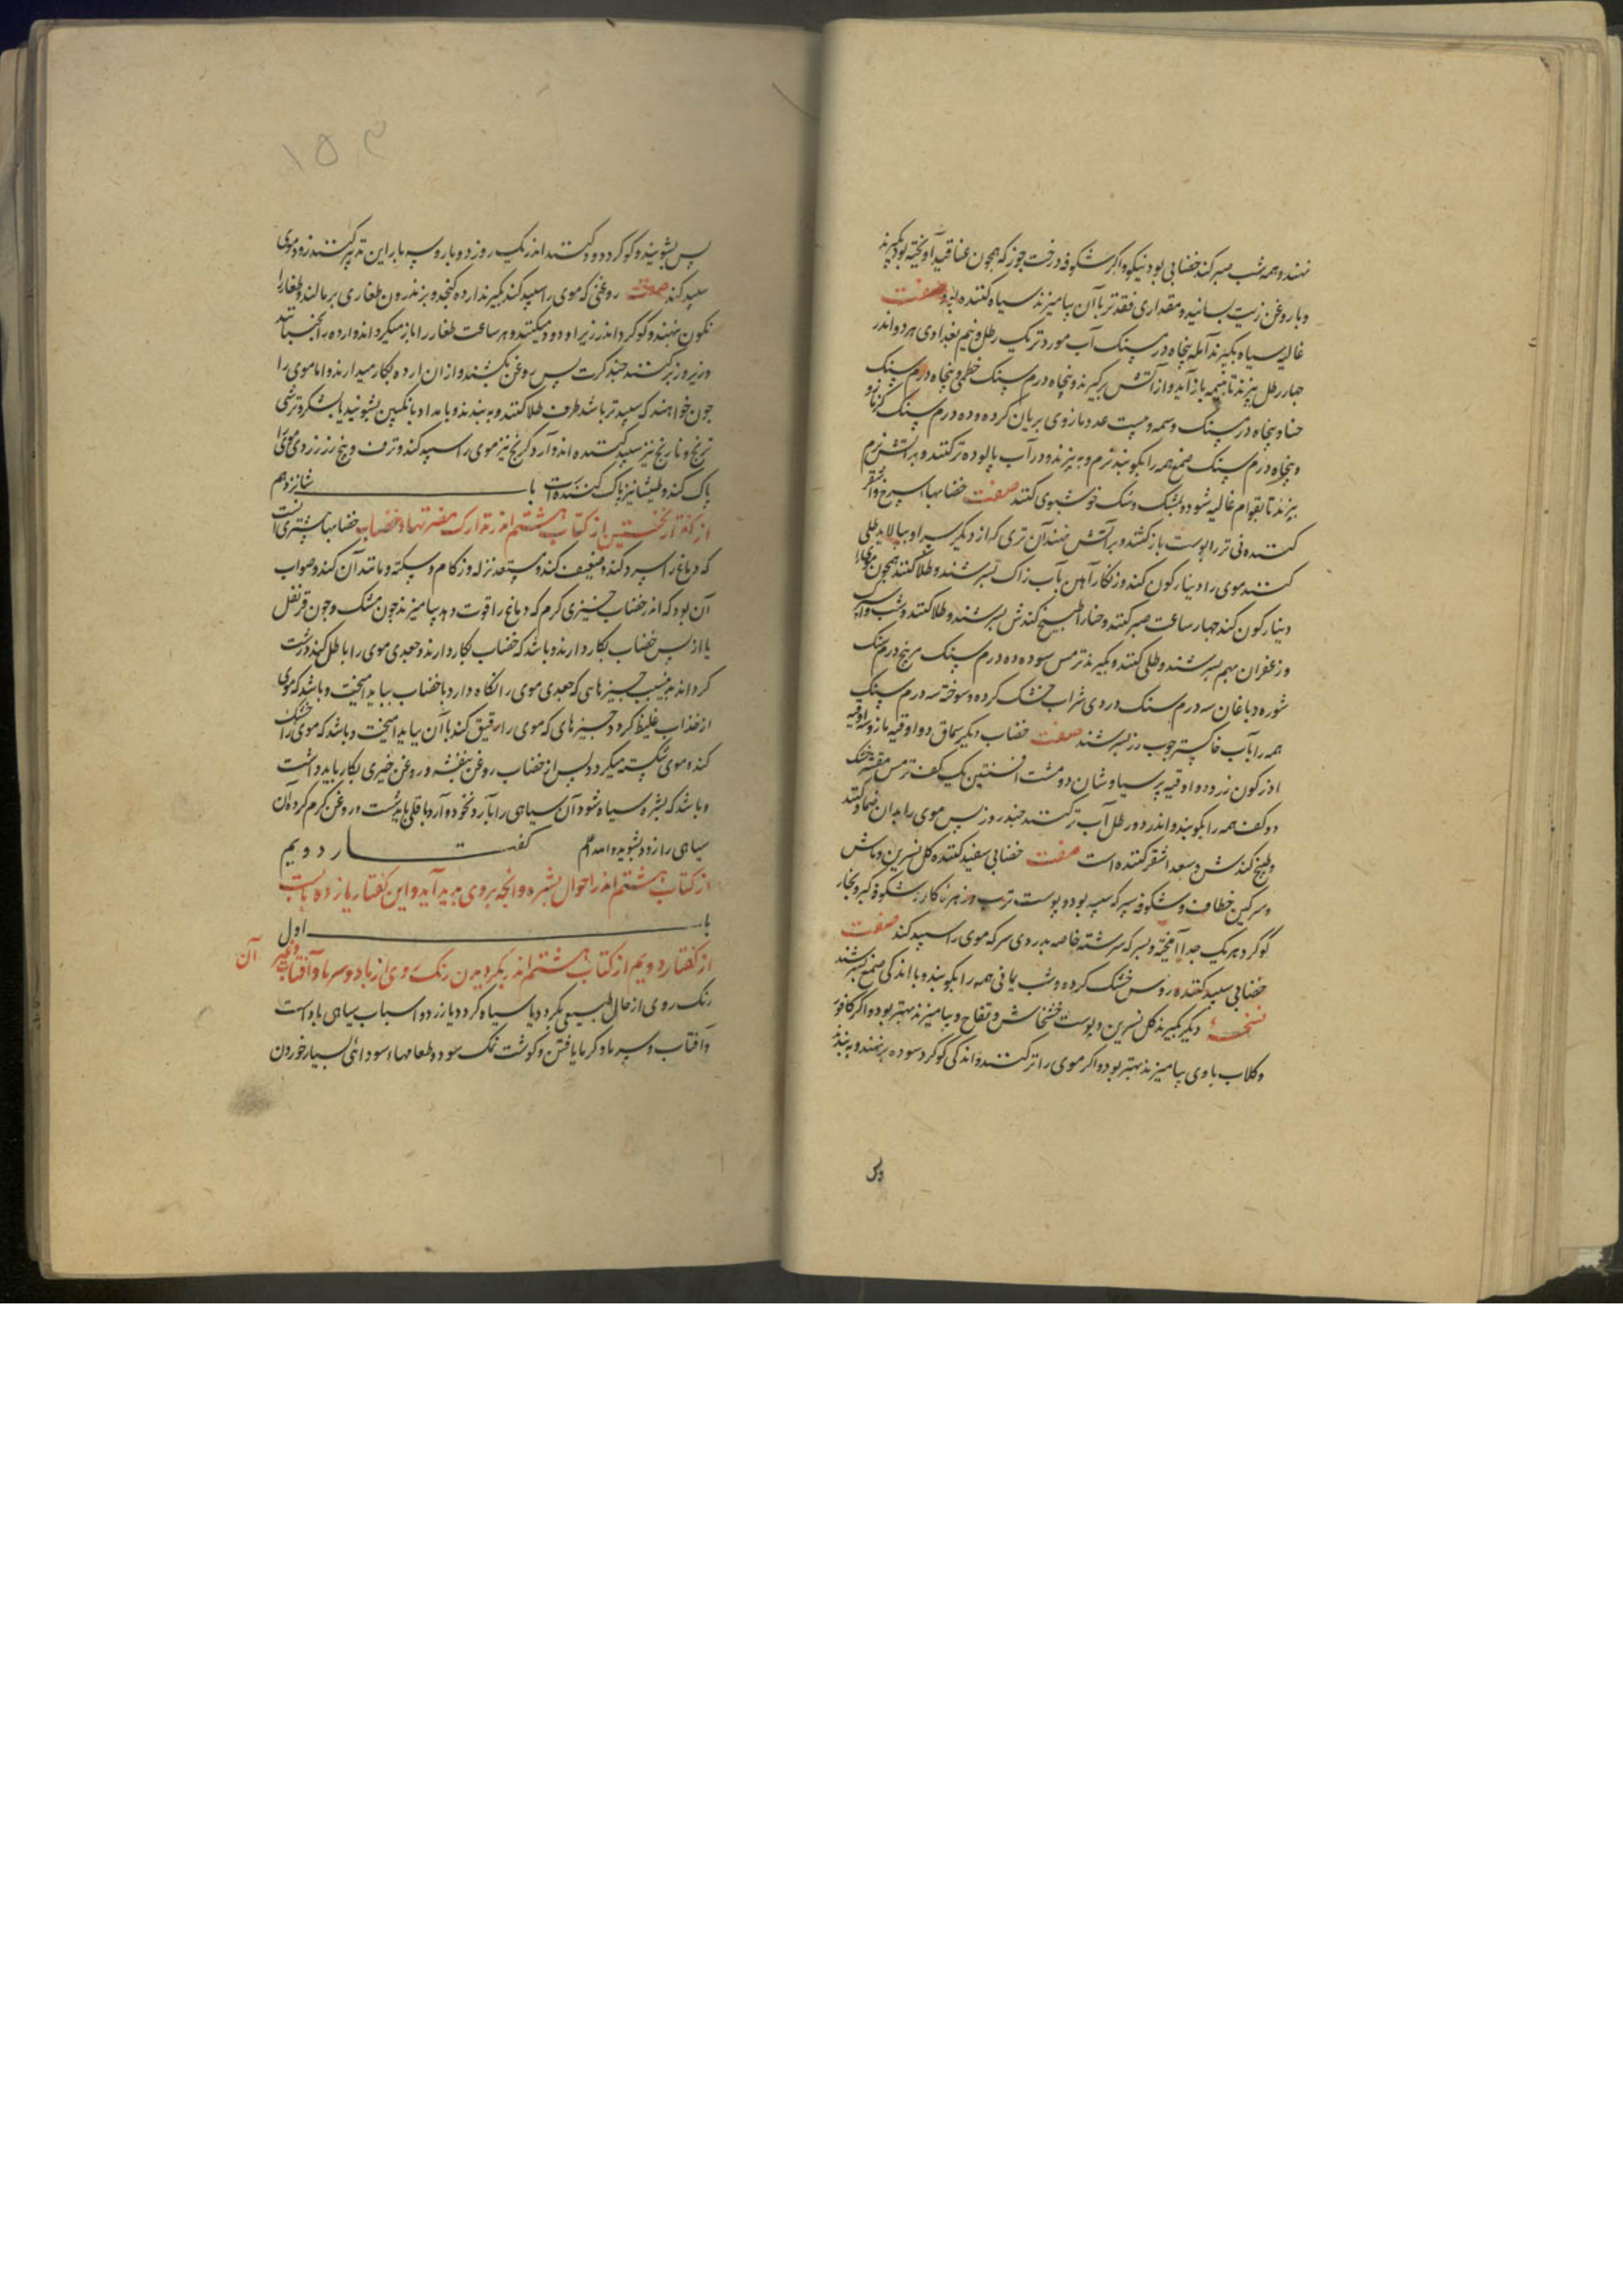 نهند و همه شب صبر کند خضابی بود نیکو و اگر شکوفه درخت جوز که همچون عناقید آویخته بود بگیرند
و با روغن زیت بسایند و مقداری فقد تر با آن بیامیزند سیاه کننده بود صفت
غالیه سیاه بگیرند آمله پنجاه درم سنک آب مورد تر یک رطل و نیم بغدادی هر دو اندر
چهار رطل بپزند تا بنیمه باز آید و از آتش برگیرند و پنجاه درم سنک خطمی و پنجاه درم سنک
حنا و پنجاه درم سنک وسمه و بیست عدد مازوی بریان کرده و ده درم سنک
و پنجاه درم سنک صمغ همه را بکوبند نرم و به بیزند و در آب پالوده تر کنند و بر آتش نرم
بپزند تا بقوام غالیه شود و بمشک و سک خوشبوی کنند صفت خضابها اسرخ و اشقر
کننده نی تر را پوست باز کنند و بر آتش نهند آن تری که از دیگر سر او بپالاید طلی
کنند موی را دینار کون کند و زنکار آهن بآب زاک بسرشند و طلا کنند همچون
دینار کون کند چهار ساعت صبر کنند و حنا را بطبیخ کندش بسرشند و طلا کنند و شب
و زعفران بهم بسرشند و طلی کنند و بگیرند ترمس سوده ده درم سنک مر پنج درم سنک
شوره دباغان سه درم سنک دردی شراب خشک کرده و سوخته سه درم سنک
همه را بآب خاکستر چوب رز بسرشند صفت خضاب دیگر سماق دو اوقیه مازو سه اوقیه
آذرکون زرد دو اوقیه پرسیاوشان دو مشت افسنتین یک کف ترمس مقشر خشک
دو کف همه را بکوبند و اندر دو رطل آب تر کنند چند روز پس موی را بدان ضماد کنند
و طبخ کندش و سعد اشقر کننده است صفت خضابی سفید کننده کل نسرین و ماش
و سرکین خطاف و شکوفه سپر که سپید بود و پوست ترب و زهره کاو و شکوفه کبر و بخار
کوکرد هر یک جدا آمیخته و بسرکه سرشته خاصه بدردی سرکه موی را سپید کند صفت
خضابی سپید کننده روس خشک کرده و شب یمانی همه را بکوبند و با اندکی صمغ بسرشند
نسخه دیگر بگیرند کل نسرین و پوست خشخاش و تفاح و بیامیزند بهتر بود و اگر کافور
و کلاب با وی بیامیزند بهتر بود و اگر موی را تر کنند و اندکی کوکرد سوده بر نهند و ببندند
پس
پس بشویند و کوکرد دود کنند اندر یک روز دو بار و سه بار این تدبیر کنند زود موی
سپید کند صفت روغنی که موی را سپید کند بگیرند ارده کنجد و بر اندرون طغاری بر مالند و طغار را
نکون نهند و کوکرد اندر زیر او دود میکنند و هر ساعت طغار را باز میکردانند و ارده را بجنبانند
و زیر و زبر کنند چند کرت پس روغن بکشند و از آن ارده بکار میدارند و اما موی را
چون خواهند که سپیدتر باشد طرف طلا کنند و ببندند و بامداد بانکبین بشویند یا بشکره ترشی
ترنج و نارنج نیز سپید کننده اند و آرد کرنج نیز موی را سپید کند و ترف و بیخ رز زردی موی را
پاک کند و طلیشا نیز پاک کننده است باب شانزدهم
از کفتار نخستین از کتاب هشتم اندر تدارک مضرتهاء خضاب خضابها بیشتری آنست
که دماغ را سرد کند و ضعیف کند و مستعد نزله و زکام و سکته و مانند آن کند و صواب
آن بود که اندر خضاب چیزی کرم که دماغ را قوت دهد بیامیزند چون مشک و چون قرنفل
یا از پس خضاب بکار دارند و باشد که خضاب بکار دارند و جعدی موی را باطل کند و درشت
کرداند بدین سبب چیزهای که جعدی موی را نکاه دارد با خضاب بباید آمیخت و باشد که موی
از خضاب غلیظ کردد چیزهای که موی را رقیق کند با آن بباید آمیخت و باشد که موی را خشک
کند و موی شکسته میکردد پس از خضاب روغن بنفشه و روغن خیری بکار باید داشت
و باشد که بشره سیاه شود آن سیاهی را بآرد نخود و آرد باقلی باید شست و روغن کرم کرده آن
سیاهی را زود بشوید والله اعلم کفتار دویم
از کتاب هشتم اندر احوال بشره و آنچه بر وی پدید آید و این کفتار یازده بابست
باب اول
از کفتار دویم از کتاب هشتم اندر بکردیدن رنک روی از باد و سرما و آفتاب و غیر آن
رنک روی از حال طبیعی بکردد یا سیاه کردد یا زرد و اسباب سیاهی باد است
و آفتاب و سرما و کرما یافتن و کوشت نمک سود و طعامها سودائی بسیار خوردن
۱۵۳